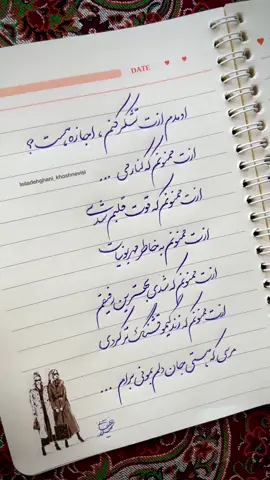 DATE
اومدم ازت تشکر کنم ، اجازه هست ؟
ازت ممنونم که کنارمی ...
leiladehghani_khoshnevisi
ازت ممنونم که قوت قلبم شدی
ازت ممنونم به خاطر مهربونیات
ازت ممنونم که شدی بهترین رفیقم
ازت ممنونم که زندگیمو قشنگ تر کردی
مرسی که هستی جان دلم بمونی برام ...